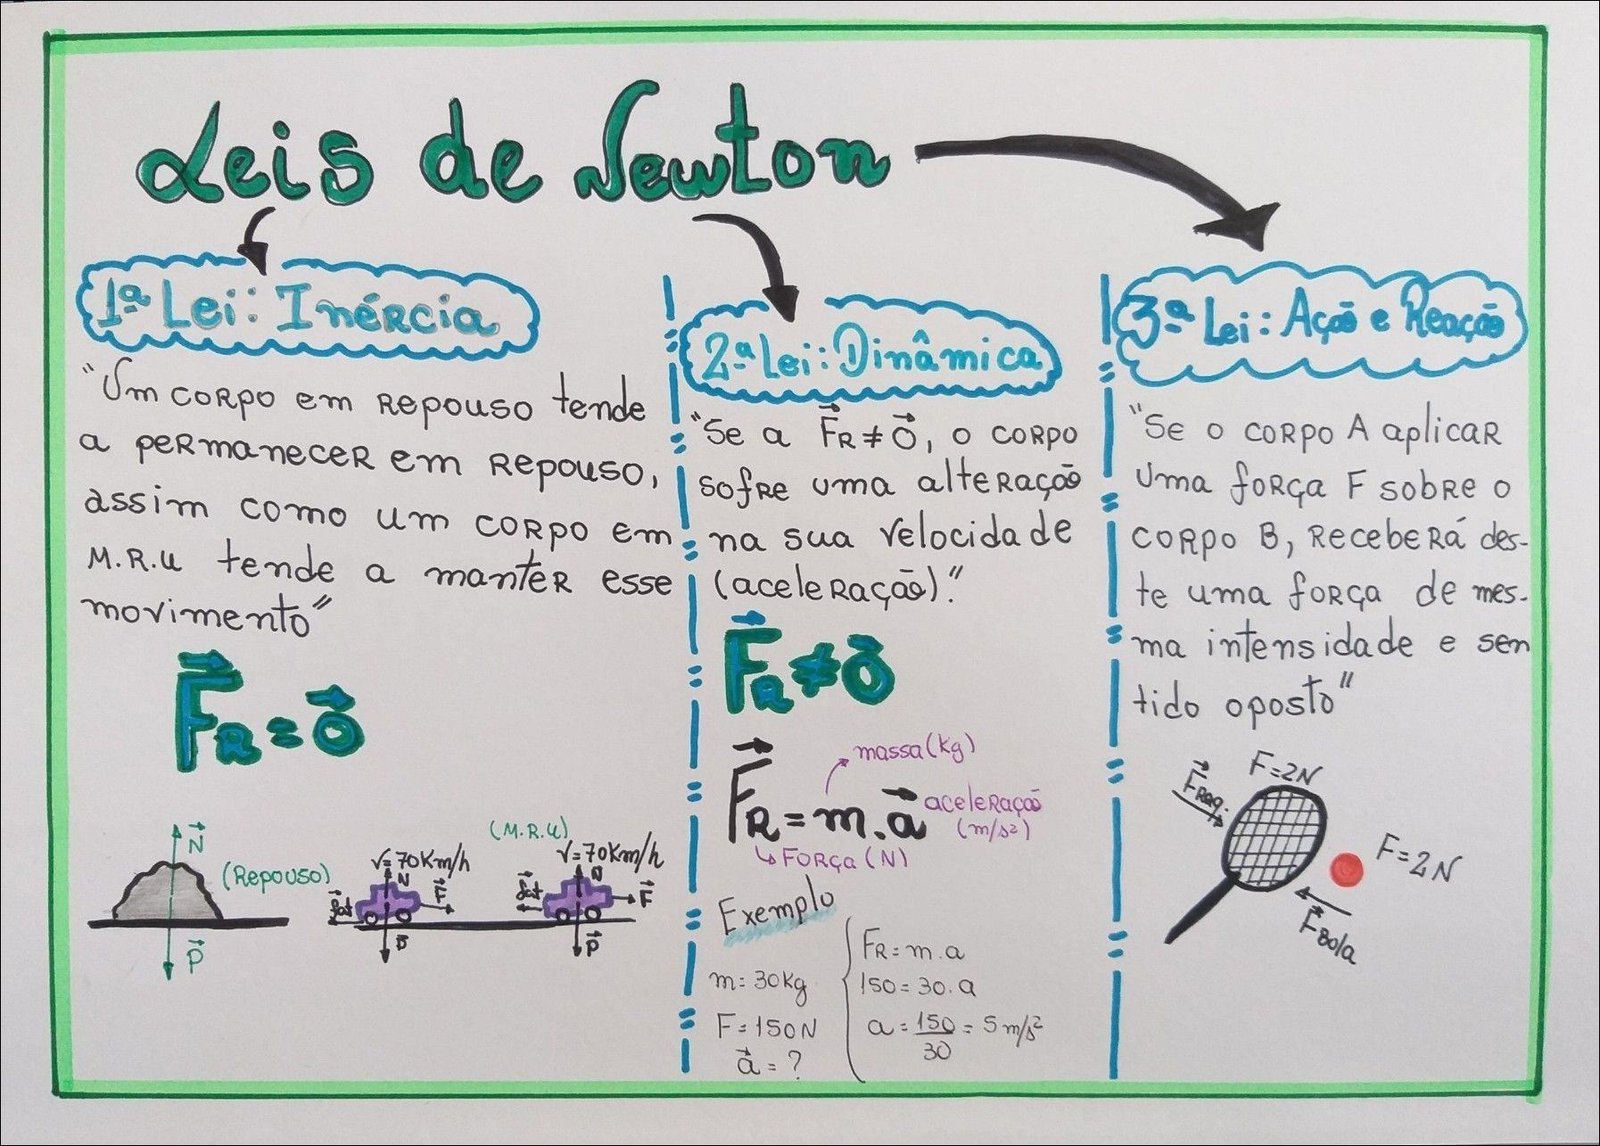 Leis de Newton
1ª Lei: Inércia
"Um corpo em repouso tende
a permanecer em repouso,
assim como um corpo em
M.R.U tende a manter esse
movimento"
F⃗R = 0⃗
N⃗
(Repouso)
P⃗
(M.R.U)
V=70Km/h
V=70Km/h
N
N
f⃗at
F⃗
f⃗at
F⃗
P⃗
P⃗
2ª Lei: Dinâmica
"Se a F⃗R ≠ 0⃗, o corpo
sofre uma alteração
na sua velocidade
(aceleração)."
F⃗R ≠ 0⃗
massa (kg)
F⃗R = m.a⃗
aceleração
(m/s²)
Força (N)
Exemplo
m=30kg
F=150N
a⃗ = ?
FR = m.a
150 = 30.a
a = 150/30 = 5 m/s²
3ª Lei: Ação e Reação
"Se o corpo A aplicar
uma força F sobre o
corpo B, receberá des-
te uma força de mes-
ma intensidade e sen
tido oposto"
F=2N
F⃗Raq.
F=2N
F⃗Bola